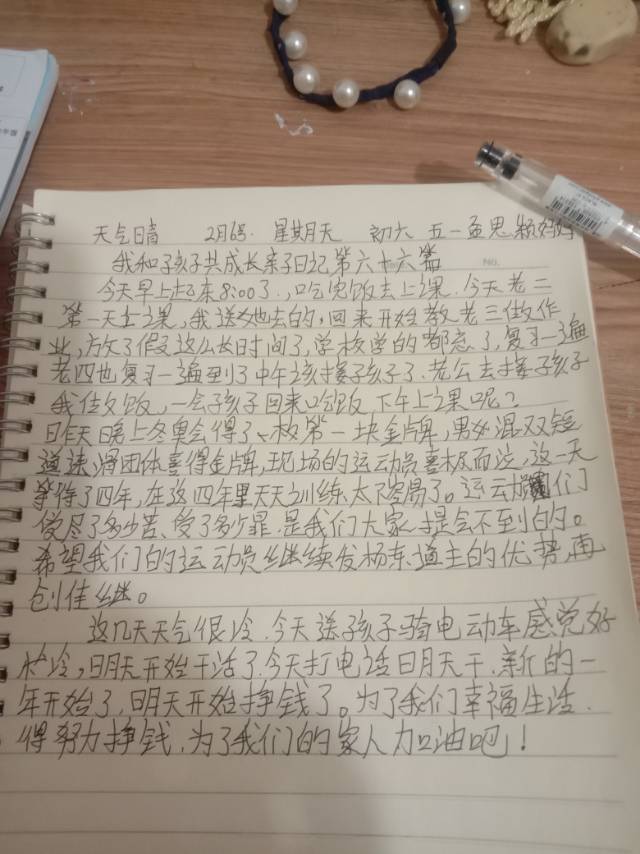 天气晴 2月6号. 星期天 初六 五一孟思颖妈妈
我和孩子共成长亲子日记第六十六篇
No.
今天早上起来8:00了.,吃完饭去上课.今天老三
第一天上课,我送她去的,回来开始教老三做作
业,放了假这么长时间了,学校学的都忘了,复习一遍
老四也复习一遍到了中午该接孩子了.老公去接孩子
我做饭,一会孩子回来吃饭下午上课呢?
昨天晚上冬奥会得了一枚第一块金牌,男女混双短
道速滑团体喜得金牌,现场的运动员喜极而泣,这一天
等待了四年,在这四年里天天训练太不容易了。运动员们
受尽了多少苦、受了多少罪.是我们大家体会不到的。
希望我们的运动员继续发杨东道主的优势,再
创佳继。
这几天天气很冷.今天送孩子骑电动车感觉好
冷,明天开始干活了.今天打电话明天干.新的一
年开始了,明天开始挣钱了。为了我们幸福生活.
得努力挣钱.为了我们的家人加油吧!